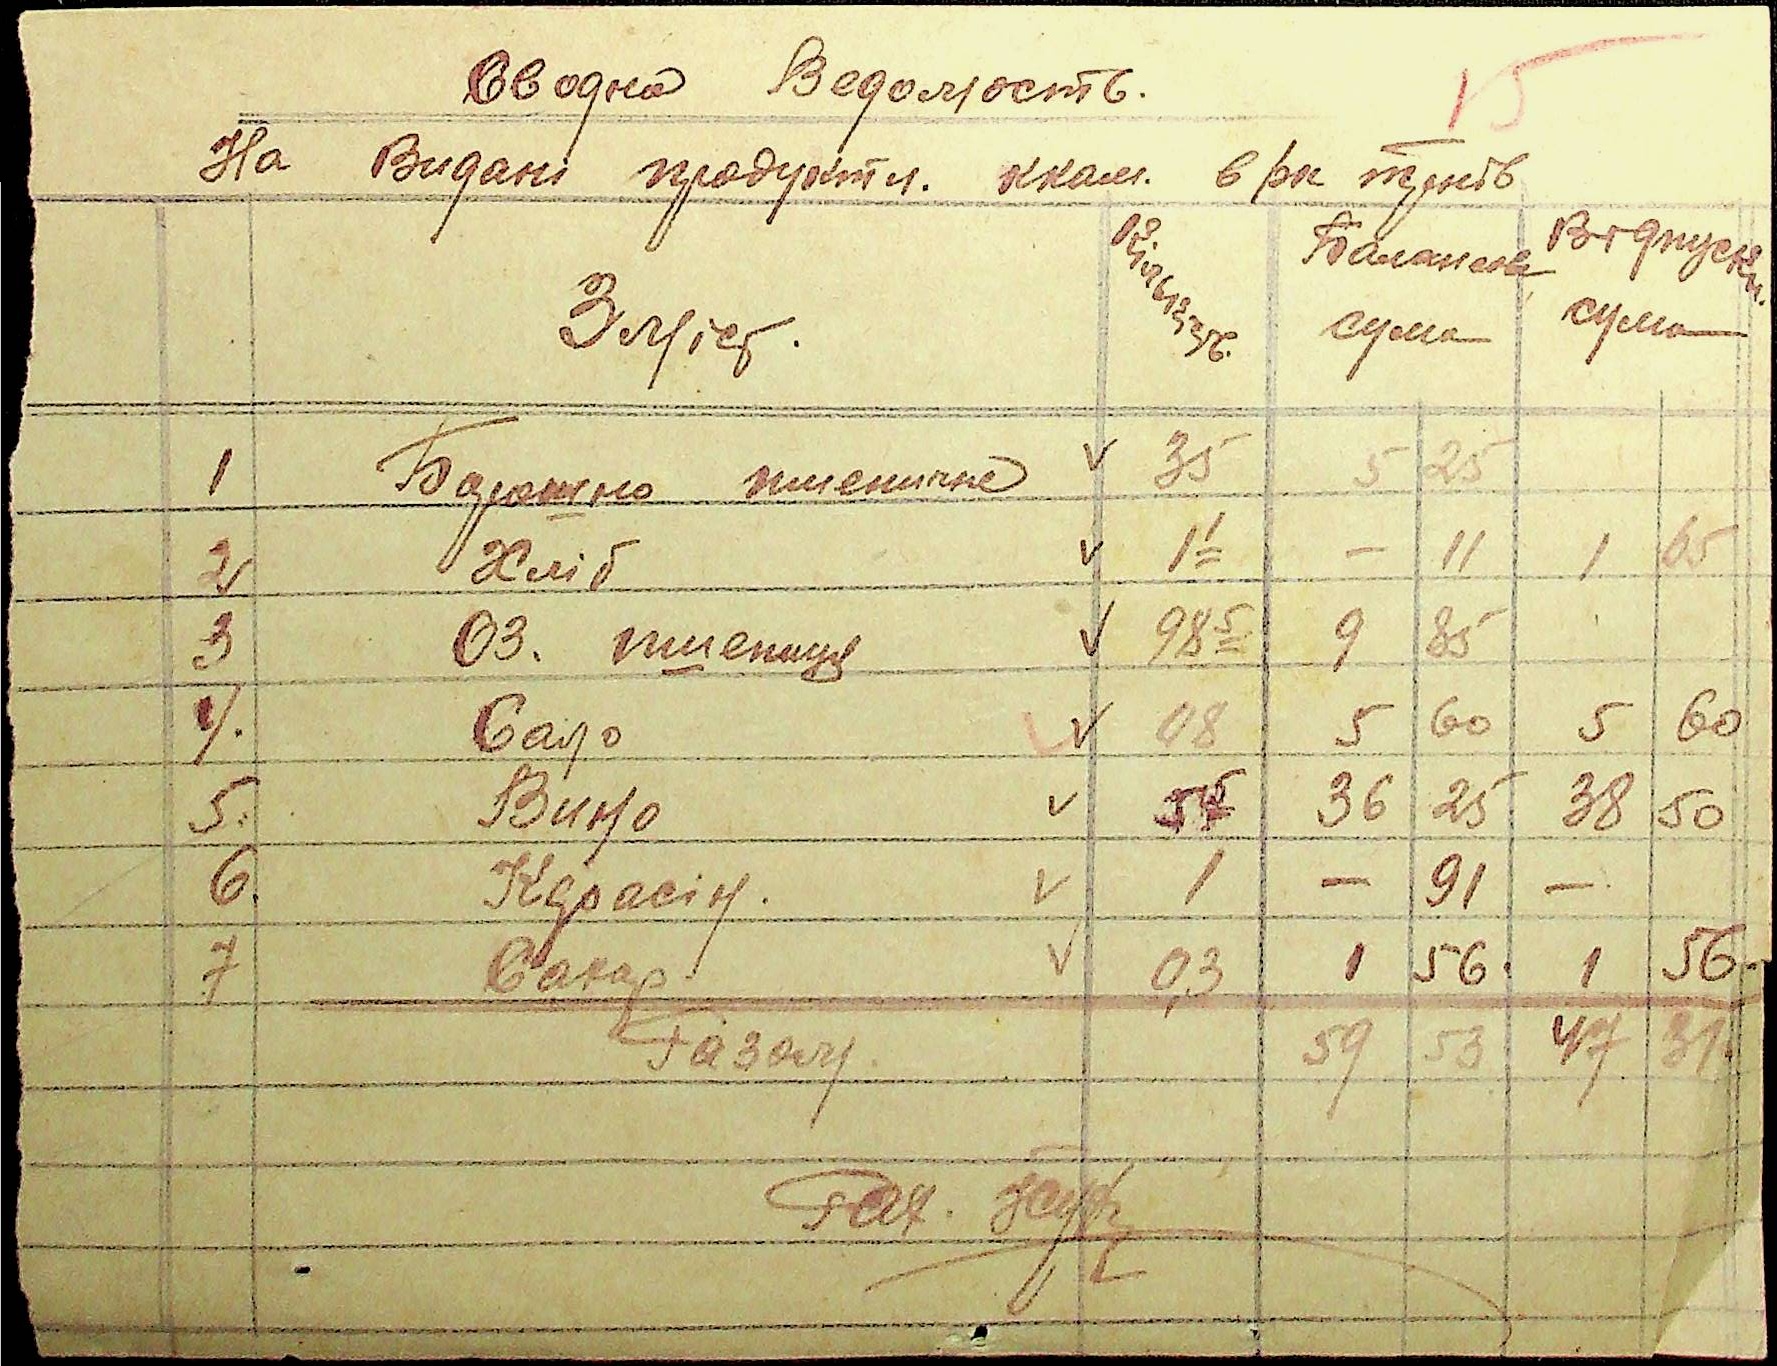 15
Сводна Ведомость.
На Видані продукти. в
Зміст. Кількість. Балансова сума Відпускн. сума
1 Борошно пшеничне v 35 5 25
2 Хліб v 11 — 11 1 65
3 ОЗ. пшениця v 98 5 9 85
4. Сало v 08 5 60 5 60
5. Вино v 36 25 38 50
6. Керасін. v 1 — 91 —
7 Сахар v 0,3 1 56. 1 56.
Разом. 59 53 47 31
Рах.